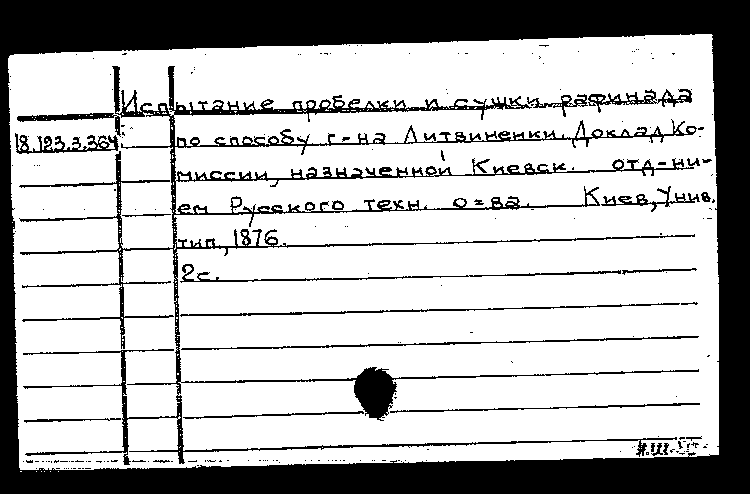 Испытание пробелки и сушки рафинада
18.123.3.364 по способу г-на Литвиненки. Доклад Ко-
миссии, назначенной Киевск. отд-ни-
ем Русского техн. о=ва. Киев, Унив.
тип., 1876.
2с.